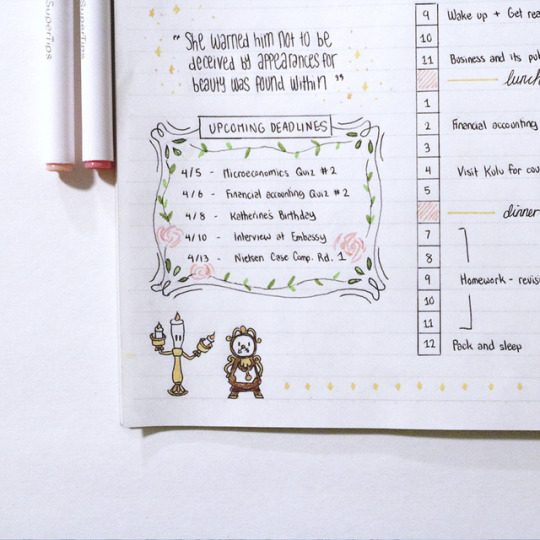 SuperTips
SuperTips
" She warned him not to be
deceived by appearances for
beauty was found within "
UPCOMING DEADLINES
4/5 - Microeconomics Quiz #2
4/6 - Financial accounting Quiz #2
4/8 - Katherine's Birthday
4/10 - Interview at Embassy
4/13 - Nielsen Case Comp. Rd. 1
9 Wake up + Get rea
10
11 Business and its pub
lunch
1
2 Financial accounting
3
4 Visit Kulu for cou
5
dinner
7
8
9 Homework - revis
10
11
12 Pack and sleep